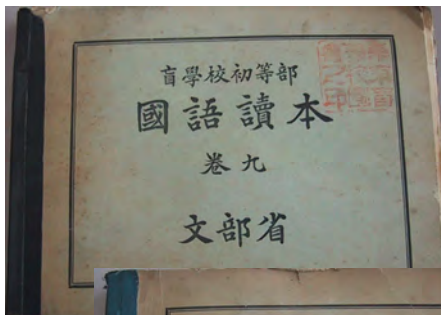 盲學校初等部
國語讀本
卷九
文部省